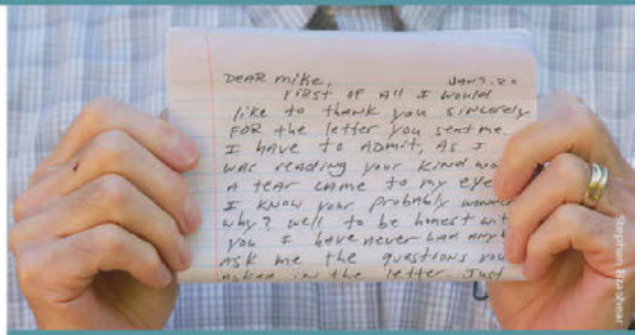 DEAR mike, JAN 9. 20
FIRST OF All I would
like to thank you sincerely
FOR the letter you sent me.
I HAVE to ADmit, AS I
was reading your kind wo
A tear came to my eye
I know your probably wonder
why? well to be honest wit
you I have never had any
ASK me the questions you
asked in the letter. Just
Stephen Brashear